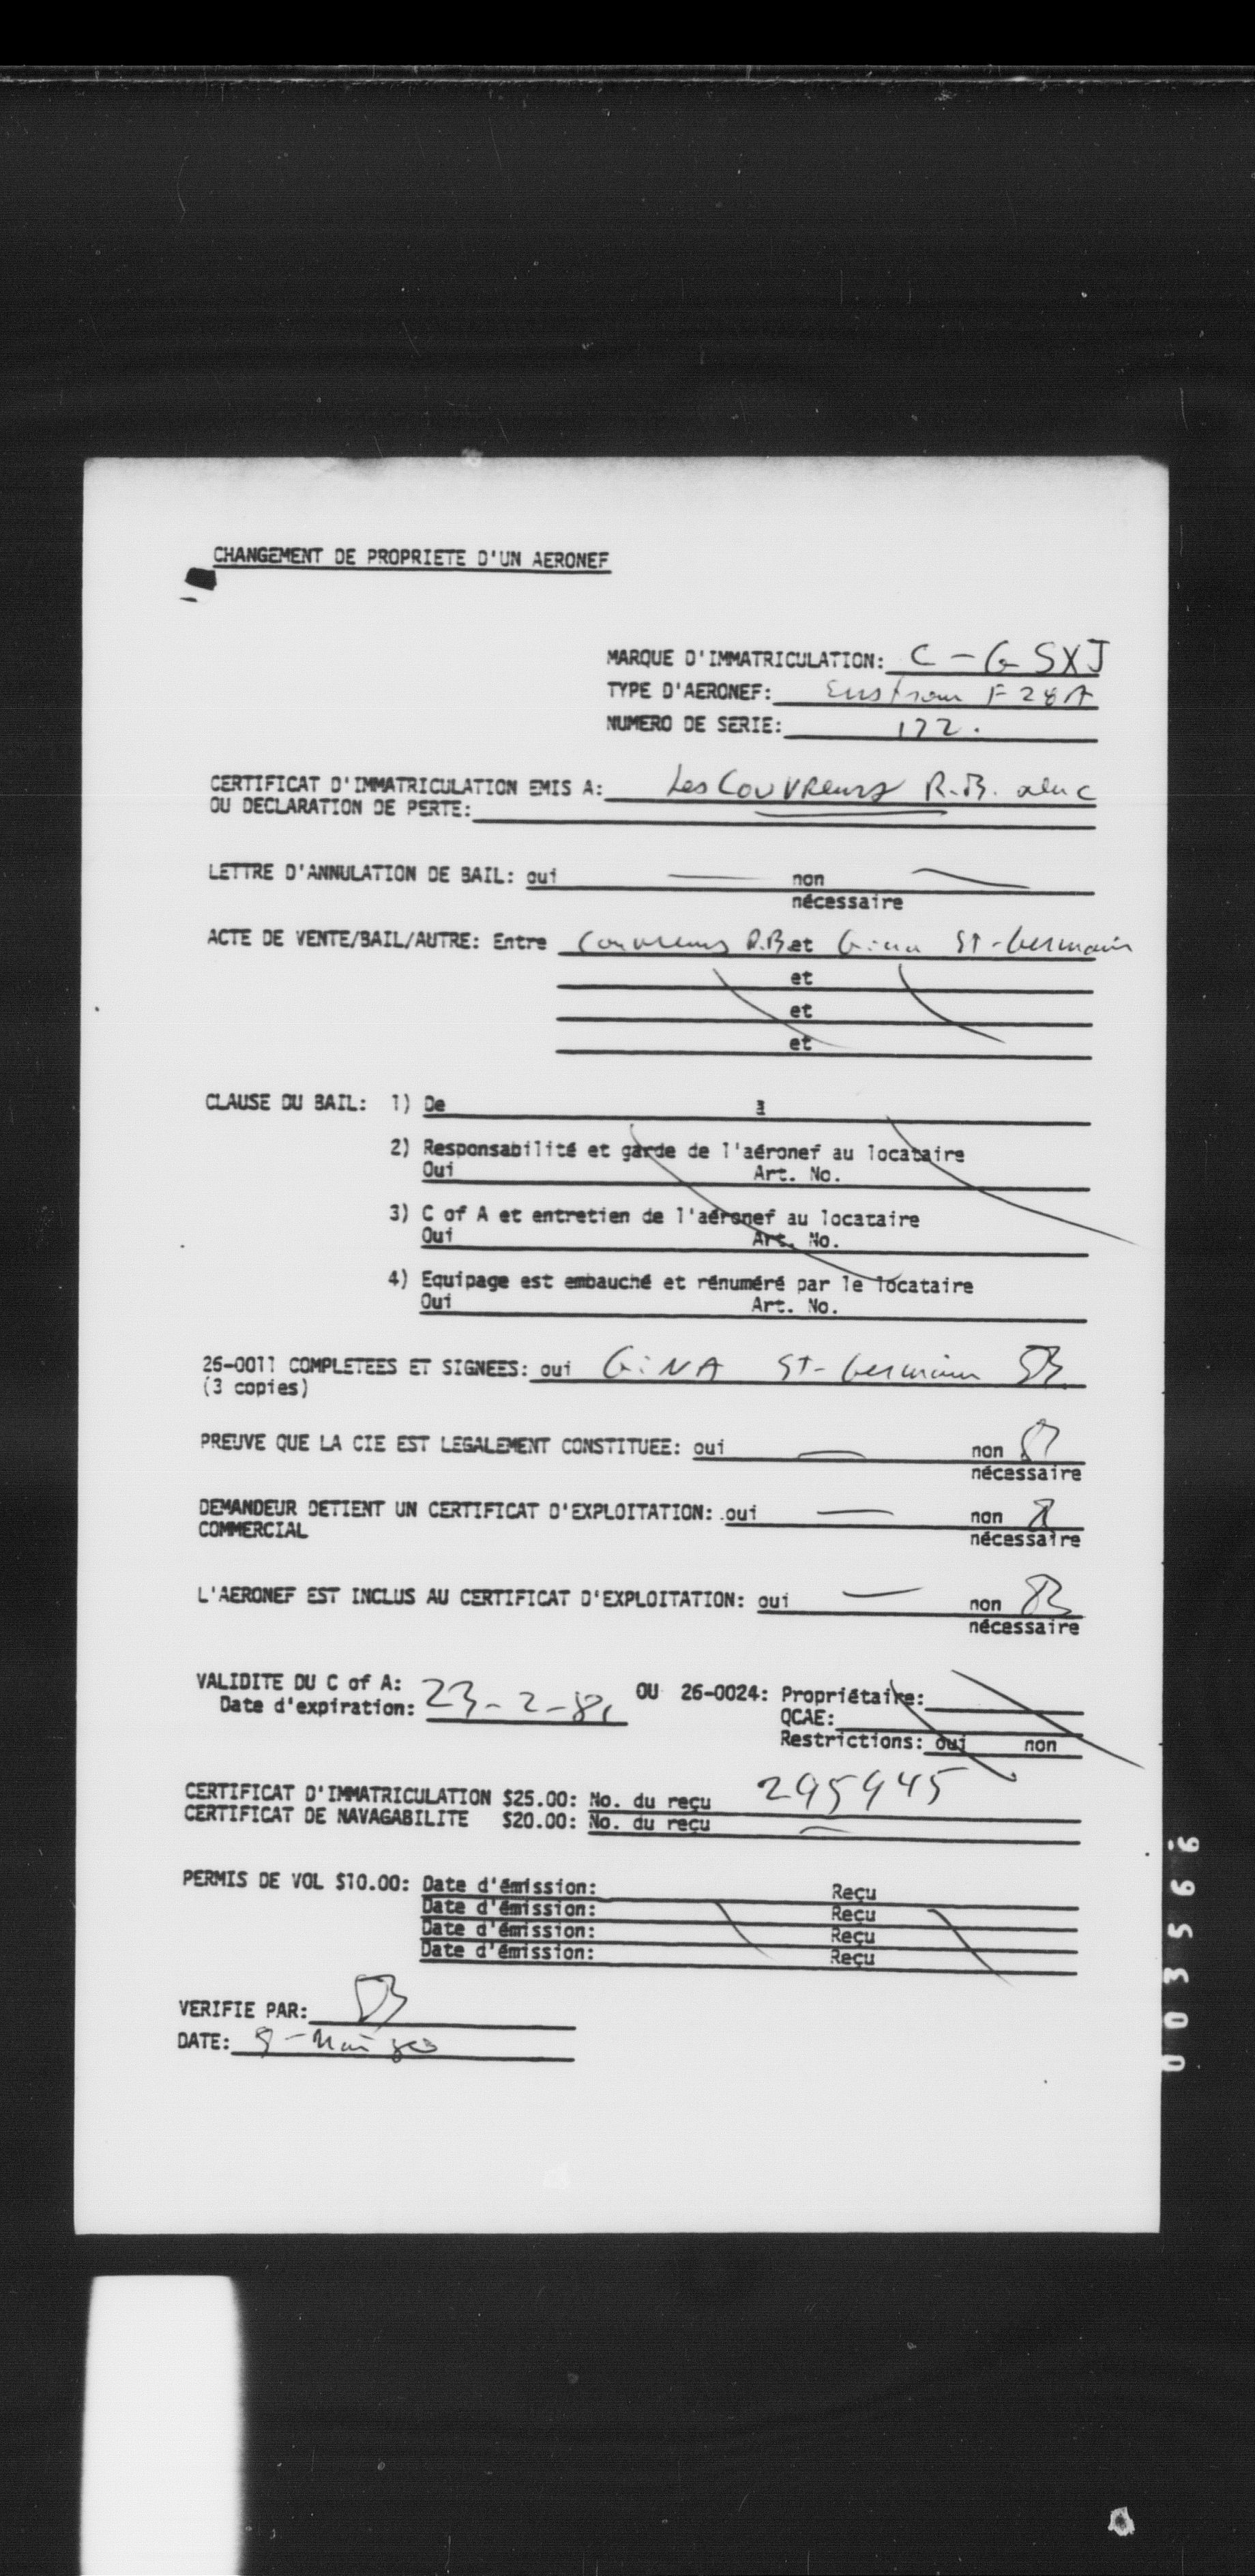 CHANGEMENT DE PROPRIETE D'UN AERONEF
MARQUE D'IMMATRICULATION: C-GSXJ
TYPE D'AERONEF: Enstrom F28A
NUMERO DE SERIE: 172.
CERTIFICAT D'IMMATRICULATION EMIS A: Les Couvreurs R.B.
OU DECLARATION DE PERTE:
LETTRE D'ANNULATION DE BAIL: oui — non —
nécessaire
ACTE DE VENTE/BAIL/AUTRE: Entre Couvreurs R.B et Gina St-Germain
et
et
et
CLAUSE DU BAIL: 1) De à
2) Responsabilité et garde de l'aéronef au locataire
Oui Art. No.
3) C of A et entretien de l'aéronef au locataire
Oui Art. No.
4) Equipage est embauché et rénuméré par le locataire
Oui Art. No.
26-0011 COMPLETEES ET SIGNEES: oui GiNA St-Germain
(3 copies)
PREUVE QUE LA CIE EST LEGALEMENT CONSTITUEE: oui — non
nécessaire
DEMANDEUR DETIENT UN CERTIFICAT D'EXPLOITATION: oui — non
COMMERCIAL nécessaire
L'AERONEF EST INCLUS AU CERTIFICAT D'EXPLOITATION: oui — non
nécessaire
VALIDITE DU C of A: OU 26-0024: Propriétaire:
Date d'expiration: 23-2-81
QCAE:
Restrictions: oui non
CERTIFICAT D'IMMATRICULATION $25.00: No. du reçu 295945
CERTIFICAT DE NAVAGABILITE $20.00: No. du reçu —
PERMIS DE VOL $10.00: Date d'émission: Reçu
Date d'émission: Reçu
Date d'émission: Reçu
Date d'émission: Reçu
VERIFIE PAR:
DATE: 9-Mai 80
003566